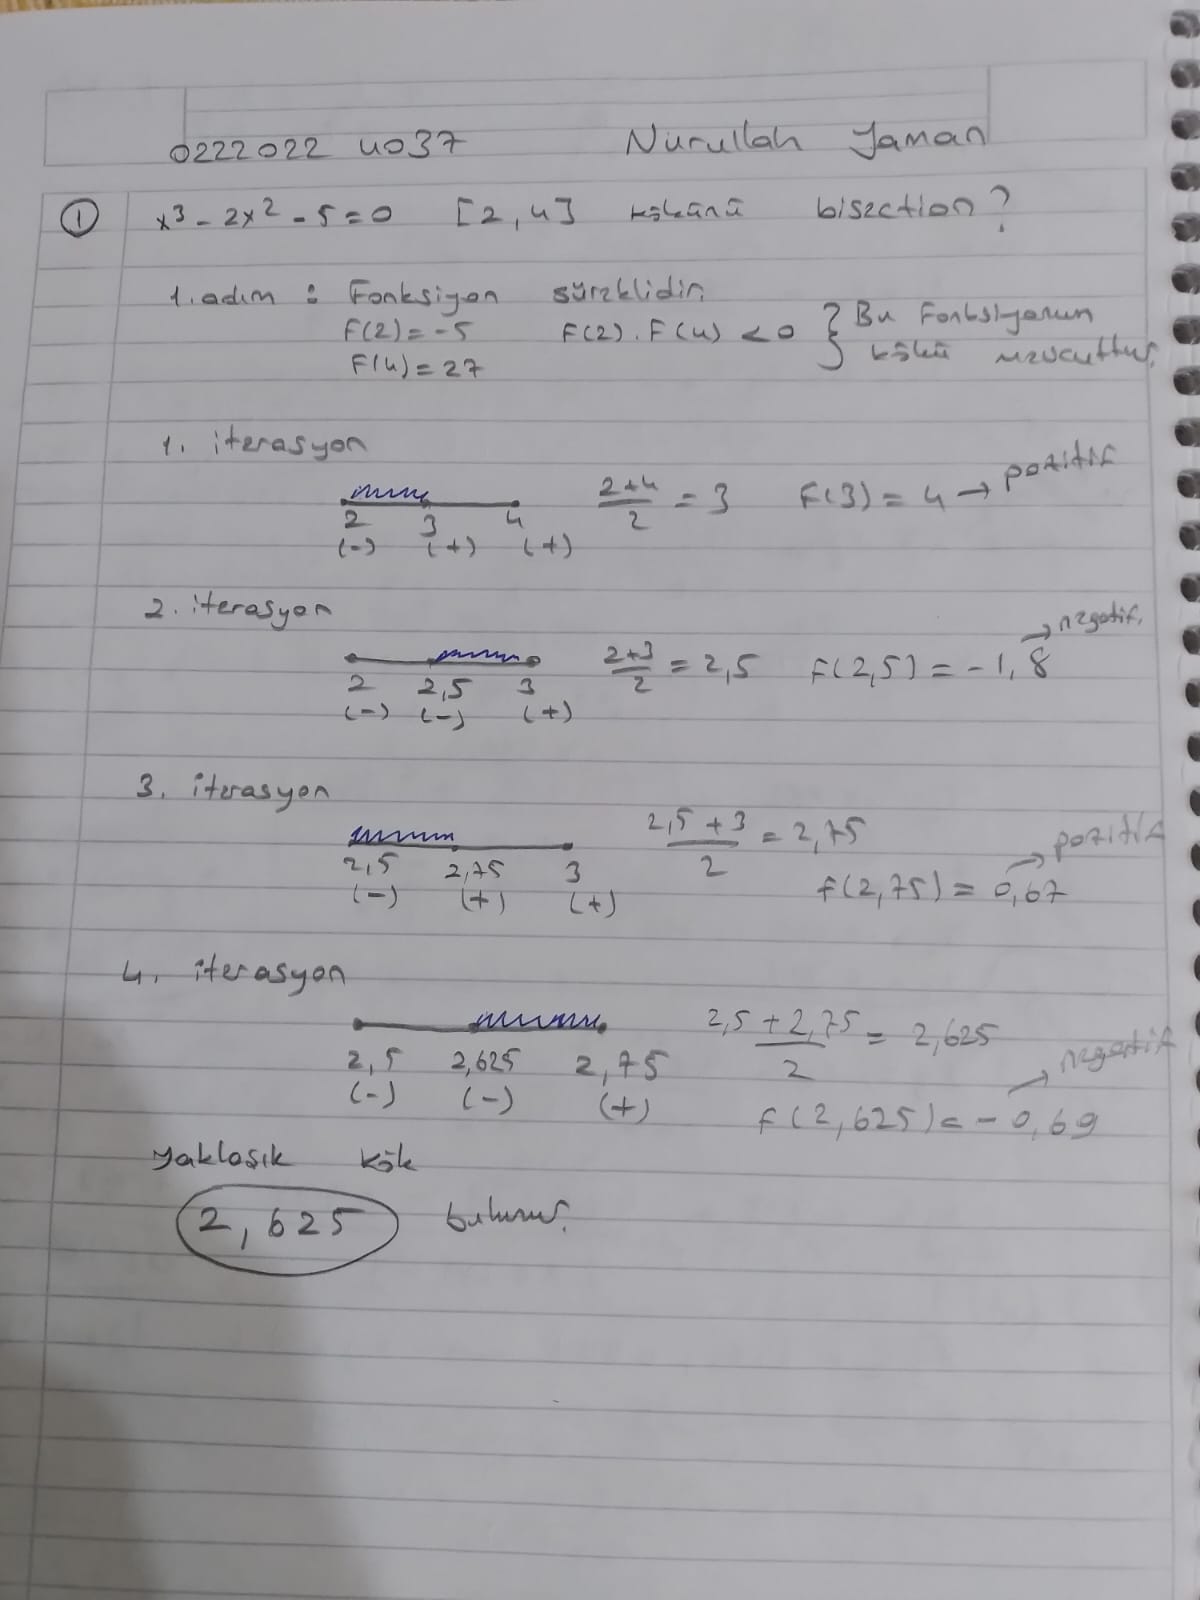 02220224037 Nurullah Yaman
① x³ - 2x² - 5 = 0 [2,4] kökünü bisection?
1. adım : Fonksiyon süreklidir.
F(2) = -5 F(2) . F(4) < 0 } Bu Fonksiyonun
F(4) = 27 kökü mevcuttur.
1. iterasyon
2+4/2 = 3 F(3) = 4 → pozitif
2 3 4
(-) (+) (+)
2. iterasyon
2+3/2 = 2,5 F(2,5) = -1,8 → negatif.
2 2,5 3
(-) (-) (+)
3. iterasyon
2,5 + 3/2 = 2,75
2,5 2,75 3
(-) (+) (+) f(2,75) = 0,67 → pozitif
4. iterasyon
2,5 + 2,75/2 = 2,625
2,5 2,625 2,75
(-) (-) (+) f(2,625) = -0,69 → negatif
yaklaşık kök
2,625 bulunur.